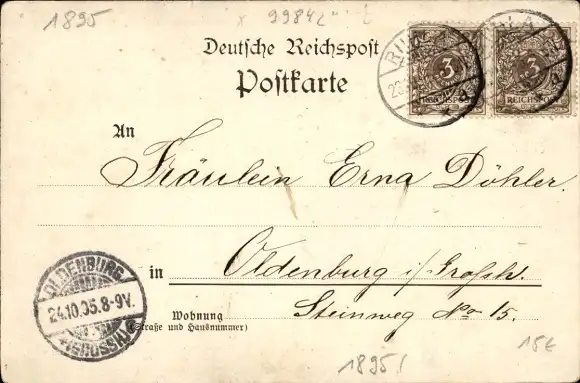 1895
9984
Deutsche Reichspost
Postkarte
3
REICHSPOST
3
REICHSPOST
An
Fräulein Erna Döhler.
in Oldenburg i/Grossh.
Wohnung
(Straße und Hausnummer)
Steinweg No 15.
OLDENBURG
24.10.95.8-9V.
(GROSSH.)
15€
1895!